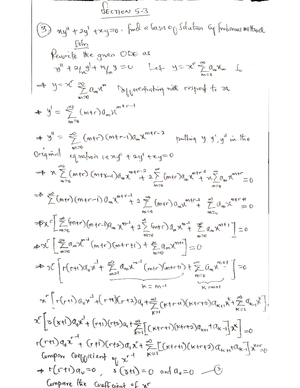 SECTION 5.3
③ xy'' + 2y' + xy = 0. Find a basis of solution by Frobenius method
Soln
Rewrite the given ODE as
y'' + 2/x y' + x/x y = 0 Let y = x^r Σ_{m=0}^∞ a_m x^m
⇒ y = x^r Σ_{m=0}^∞ a_m x^m Differentiating with respect to x
⇒ y' = Σ_{m=0}^∞ (m+r) a_m x^{m+r-1}
⇒ y'' = Σ_{m=0}^∞ (m+r)(m+r-1) a_m x^{m+r-2} putting y, y', y'' in the
Original equation i.e xy'' + 2y' + xy = 0
⇒ x Σ_{m=0}^∞ (m+r)(m+r-1) a_m x^{m+r-2} + 2 Σ_{m=0}^∞ (m+r) a_m x^{m+r-1} + x Σ_{m=0}^∞ a_m x^{m+r} = 0
⇒ Σ_{m=0}^∞ (m+r)(m+r-1) a_m x^{m+r-1} + 2 Σ_{m=0}^∞ (m+r) a_m x^{m+r-1} + Σ_{m=0}^∞ a_m x^{m+r+1} = 0
⇒ x^r [Σ_{m=0}^∞ (m+r)(m+r-1) a_m x^{m-1} + 2 Σ_{m=0}^∞ (m+r) a_m x^{m-1} + Σ_{m=0}^∞ a_m x^{m+1}] = 0
⇒ x^r [Σ_{m=0}^∞ a_m x^{m-1} (m+r)(m+r+1) + Σ_{m=0}^∞ a_m x^{m+1}] = 0
⇒ x^r [r(r+1) a_0 x^{-1} + Σ_{m=1}^∞ a_m x^{m-1} (m+r)(m+r+1) + Σ_{m=0}^∞ a_m x^{m+1}] = 0
k = m-1 k = m+1
x^r [r(r+1) a_0 x^{-1} + (r+1)(r+2) a_1 + Σ_{k=1}^∞ (k+r+1)(k+r+2) a_{k+1} x^k + Σ_{k=1}^∞ a_{k-1} x^k]
x^r [r(r+1) a_0 x^{-1} + (r+1)(r+2) a_1 + Σ_{k=1}^∞ [(k+r+1)(k+r+2) a_{k+1} + a_{k-1}] x^k] = 0
r(r+1) a_0 x^{r-1} + (r+1)(r+2) a_1 x^r + Σ_{k=1}^∞ [(k+r+1)(k+r+2) a_{k+1} + a_{k-1}] x^{k+r} = 0
Compare coefficient of x^{r-1}
⇒ r(r+1) a_0 = 0,
Compare the coefficient of x^r